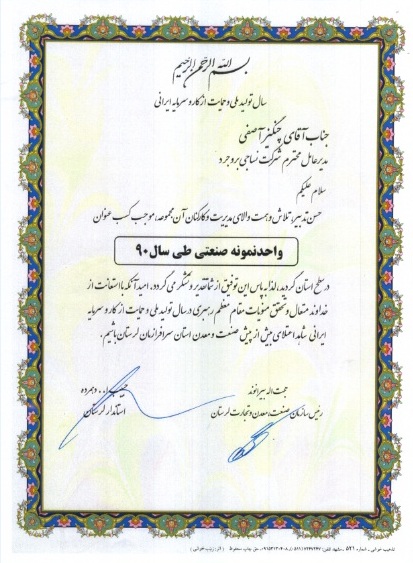 بسم الله الرحمن الرحیم
سال تولید ملی و حمایت از کار و سرمایه ایرانی
جناب آقای چنگیز آصفی
مدیر عامل محترم شرکت نساجی بروجرد
سلام علیکم
حسن تدبیر، تلاش و همت والای مدیریت و کارکنان آن مجموعه، موجب کسب عنوان
واحد نمونه صنعتی طی سال ۹۰
در سطح استان گردید، لذا به پاس این توفیق از شما تقدیر و تشکر می گردد. امید آنکه با استعانت از
خداوند متعال و تحقق منویات مقام معظم رهبری در سال تولید ملی و حمایت از کار و سرمایه
ایرانی شاهد اعتلای بیش از پیش صنعت و معدن استان سرافرازمان لرستان باشیم.
حجت اله بیرانوند
رئیس سازمان صنعت، معدن و تجارت لرستان
دهمرده
استاندار لرستان